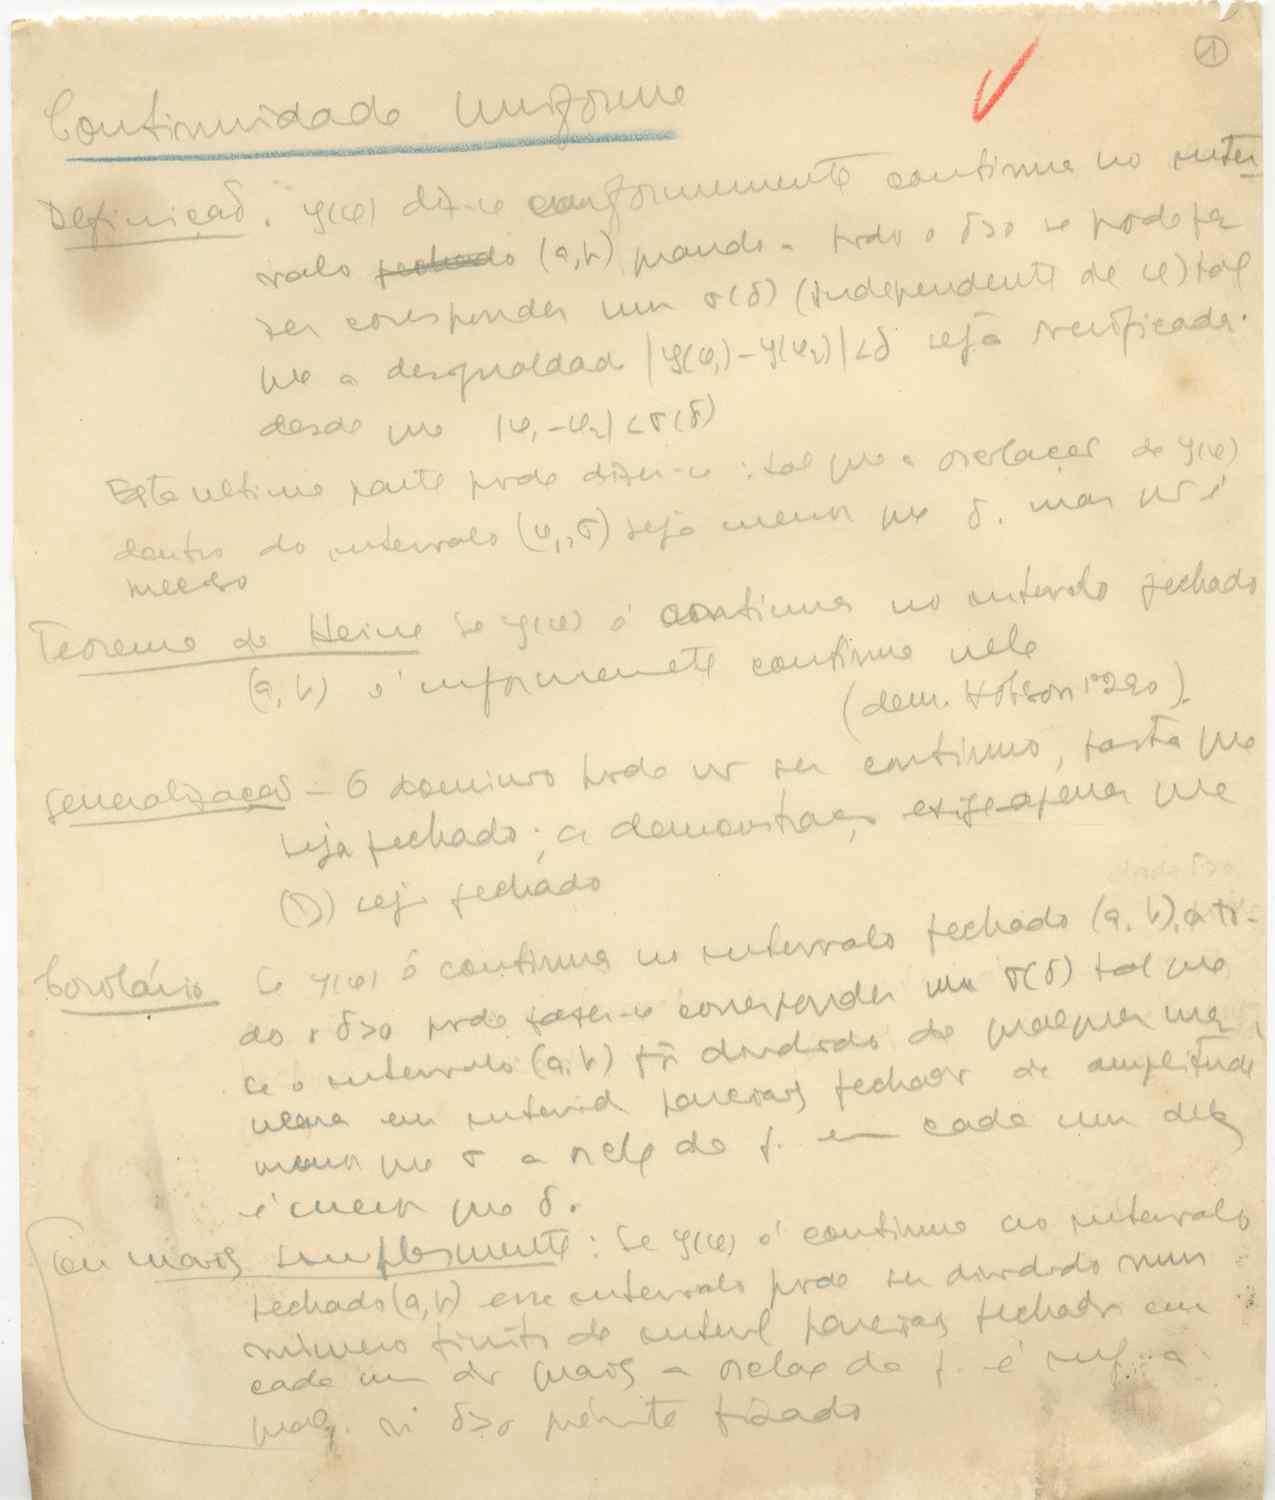 1
Continuidade uniforme
Definição. y(φ) diz-se uniformemente continua no inter
valo fechado (a,b) quando a todo o δ>0 se pode fa
zer corresponder um σ(δ) (independente de φ) tal
que a desigualdad |y(φ₁)-y(φ₂)|<δ seja verificada
desde que |φ₁-φ₂|<σ(δ)
Esta ultima parte pode dizer-se: tal que a oscilação de y(φ)
dentro do intervalo (φ₁,σ) seja menor que δ. mas é
Teorema de Heine Se y(φ) é continua no intervalo fechado
(a,b) é uniformemente continua nele
(dem. Hobson 1º 290).
Generalização - O dominio pode ser continuo, basta que
seja fechado; a demonstração exige apenas que
(D) seja fechado
dado δ>0
Corolário Se y(φ) é continua no intervalo fechado (a,b), a to-
do o δ>0 pode fazer-se corresponder um σ(δ) tal que
se o intervalo (a,b) fôr dividido de qualquer ma
neira em interval parciais fechados de amplitude
menor que σ a oscilç da f. em cada um deles
é menor que δ.
Ou mais simplesmente: Se y(φ) é continua no intervalo
fechado (a,b) esse intervalo pode ser dividido num
número finito de interval parciais fechados em
cada um dos quais a oscilaç da f. é inf. a
qualq. nº δ>0 préviamente fixado